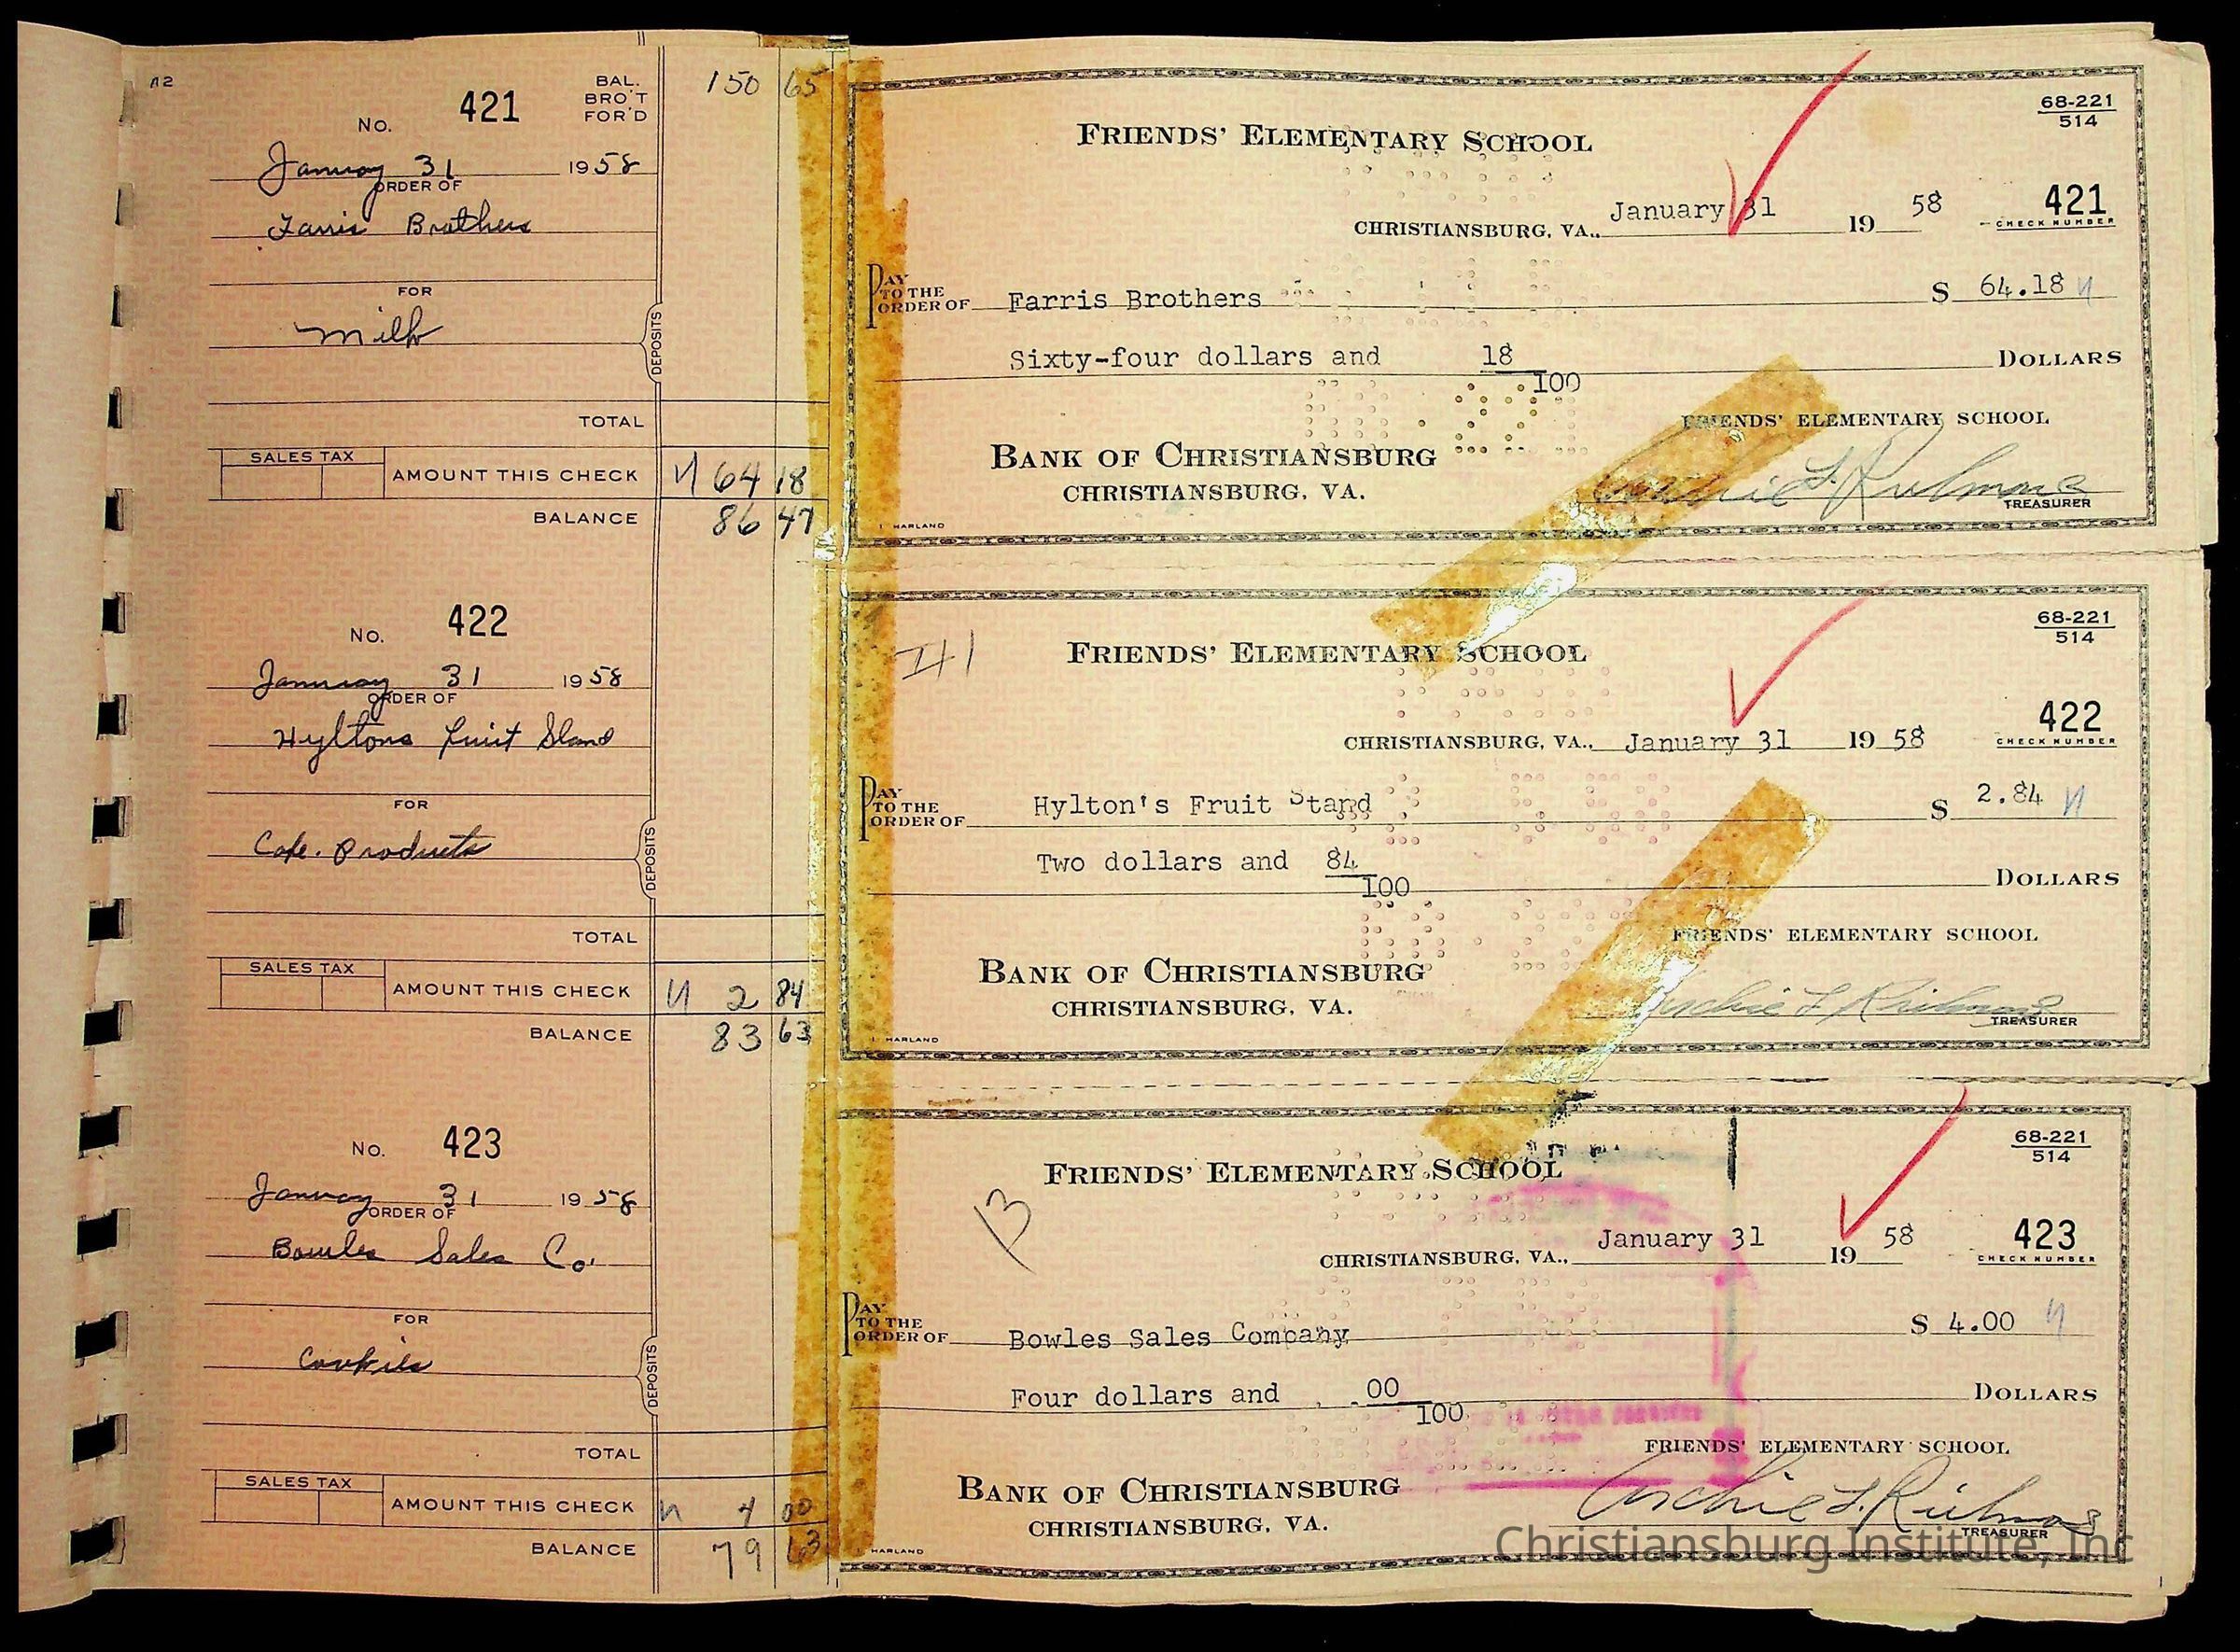 A2
BAL.
BRO'T
FOR'D
150 65
No. 421
January 31 1958
ORDER OF
Farris Brothers
FOR
Milk
DEPOSITS
TOTAL
SALES TAX
AMOUNT THIS CHECK 64 18
BALANCE 86 47
No. 422
January 31 1958
ORDER OF
Hyltons Fruit Stand
FOR
Cafe. Products
DEPOSITS
TOTAL
SALES TAX
AMOUNT THIS CHECK 2 84
BALANCE 83 63
No. 423
January 31 1958
ORDER OF
Bowles Sales Co.
FOR
Cookies
DEPOSITS
TOTAL
SALES TAX
AMOUNT THIS CHECK 4 00
BALANCE 79 63
68-221
514
FRIENDS' ELEMENTARY SCHOOL
CHRISTIANSBURG, VA., January 31 19 58 421
CHECK NUMBER
PAY TO THE ORDER OF Farris Brothers $ 64.18
Sixty-four dollars and 18/100 DOLLARS
FRIENDS' ELEMENTARY SCHOOL
BANK OF CHRISTIANSBURG
CHRISTIANSBURG, VA.
TREASURER
HARLAND
68-221
514
FRIENDS' ELEMENTARY SCHOOL
CHRISTIANSBURG, VA., January 31 19 58 422
CHECK NUMBER
PAY TO THE ORDER OF Hylton's Fruit Stand $ 2.84
Two dollars and 84/100 DOLLARS
FRIENDS' ELEMENTARY SCHOOL
BANK OF CHRISTIANSBURG
CHRISTIANSBURG, VA.
TREASURER
HARLAND
68-221
514
FRIENDS' ELEMENTARY SCHOOL
B
CHRISTIANSBURG, VA., January 31 19 58 423
CHECK NUMBER
PAY TO THE ORDER OF Bowles Sales Company $ 4.00
Four dollars and 00/100 DOLLARS
FRIENDS' ELEMENTARY SCHOOL
BANK OF CHRISTIANSBURG
CHRISTIANSBURG, VA.
Archie L.
TREASURER
HARLAND
Christiansburg Institute, Inc